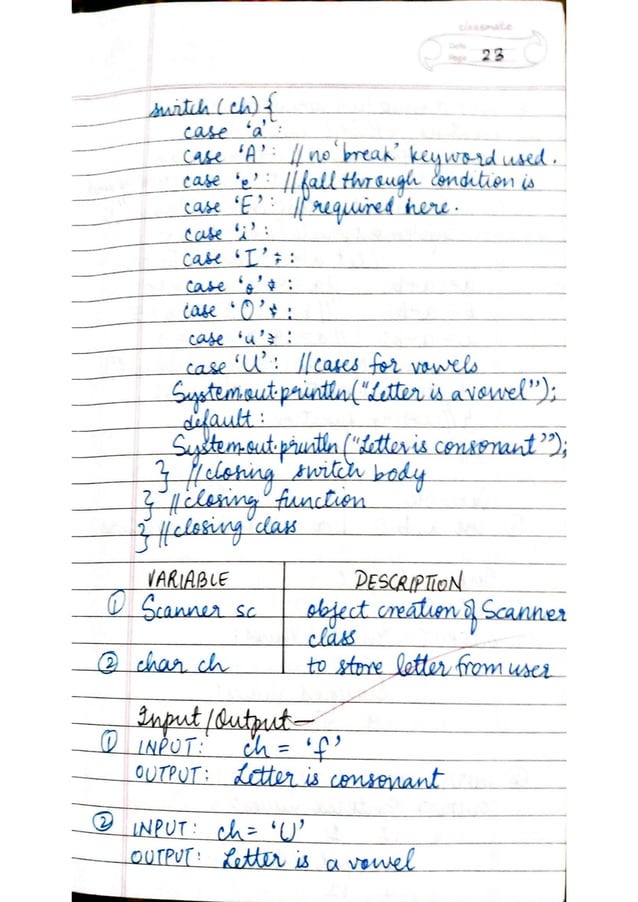 classmate
Date
Page 23
switch (ch) {
case 'a' :
case 'A' : // no 'break' keyword used.
case 'e' : // fall through condition is
case 'E' : // required here.
case 'i' :
case 'I' :
case 'o' :
case 'O' :
case 'u' :
case 'U' : // cases for vowels
System.out.println("Letter is a vowel");
default :
System.out.println("Letter is consonant");
} // closing switch body
} // closing function
} // closing class
VARIABLE DESCRIPTION
① Scanner sc object creation of Scanner
class
② char ch to store letter from user
Input/Output —
① INPUT: ch = 'f'
OUTPUT: Letter is consonant
② INPUT: ch = 'U'
OUTPUT: Letter is a vowel